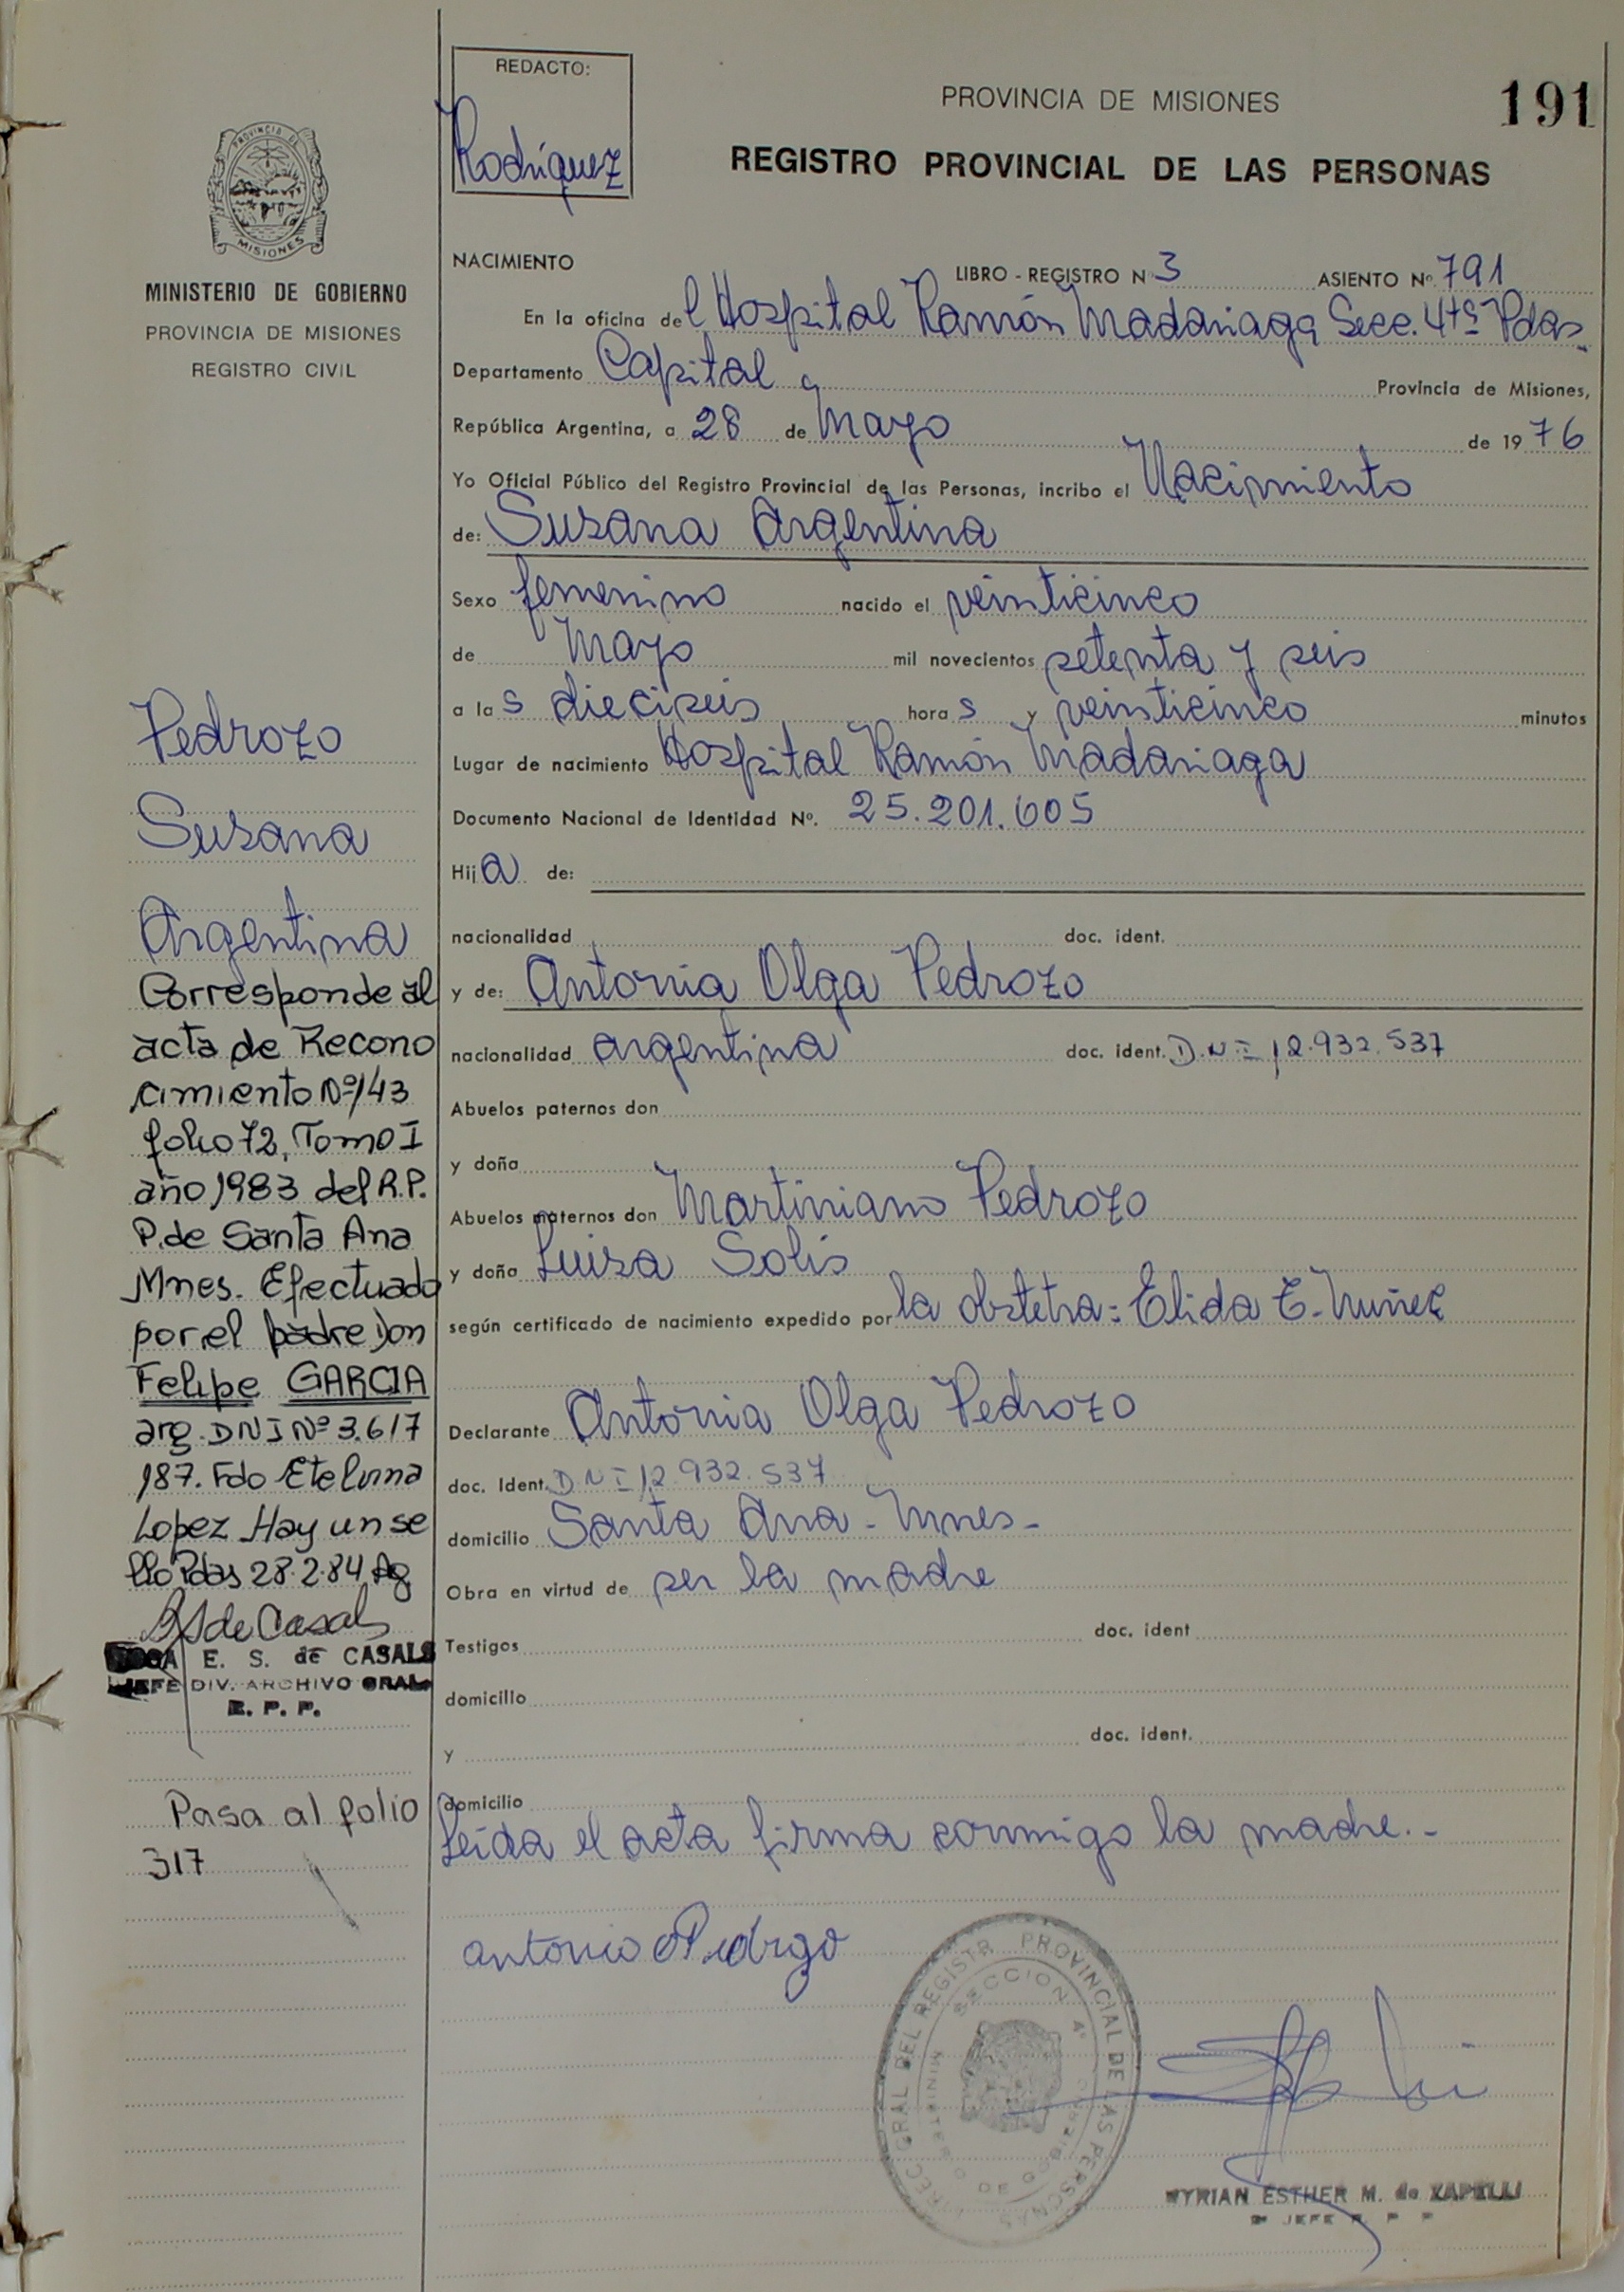 REDACTO:
Rodríguez
PROVINCIA DE MISIONES
191
REGISTRO PROVINCIAL DE LAS PERSONAS
PROVINCIA DE
MISIONES
MINISTERIO DE GOBIERNO
PROVINCIA DE MISIONES
REGISTRO CIVIL
NACIMIENTO LIBRO - REGISTRO N 3 ASIENTO Nº 791
En la oficina del Hospital Ramón Madariaga Secc. 4ta Pdas.
Departamento Capital Provincia de Misiones,
República Argentina, a 28 de Mayo de 1976
Yo Oficial Público del Registro Provincial de las Personas, incribo el Nacimiento
de: Susana Argentina
Sexo femenino nacido el veinticinco
de Mayo mil novecientos setenta y seis
a las dieciseis horas y veinticinco minutos
Lugar de nacimiento Hospital Ramón Madariaga
Documento Nacional de Identidad Nº. 25.201.605
Hija de:
nacionalidad doc. ident.
y de: Antonia Olga Pedrozo
nacionalidad argentina doc. ident. D.N.I 12.932.537
Abuelos paternos don
y doña
Abuelos maternos don Martiniano Pedrozo
y doña Luisa Solis
según certificado de nacimiento expedido por la obstetra: Elida E. Nuñez
Declarante Antonia Olga Pedrozo
doc. Ident. DNI 12.932.537
domicilio Santa Ana - Mnes -
Obra en virtud de ser la madre
Testigos doc. ident
domicilio
y doc. ident.
domicilio
Leída el acta firma conmigo la madre.-
Pedrozo
Susana
Argentina
Corresponde al
acta de Recono
cimiento Nº 143
folio 72, Tomo I
año 1983 del R.P.
P. de Santa Ana
Mnes. Efectuado
por el padre Don
Felipe GARCIA
arg. DNI Nº 3.617
187. Fdo Etelvina
Lopez Hay un se
llo Pdas 28.2.84 Ag
E. S. de CASALS
JEFE DIV. ARCHIVO GRAL
R. P. P.
Pasa al folio
317
DIREC. GRAL DEL REGISTR. PROVINCIAL DE LAS PERSONAS
SECCION 4º
MINISTERIO DE GOBIERNO
MYRIAN ESTHER M. de ZAPELLI
JEFE R. P. P